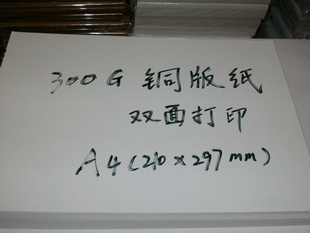 300G 铜版纸
双面打印
A4(210×297mm)